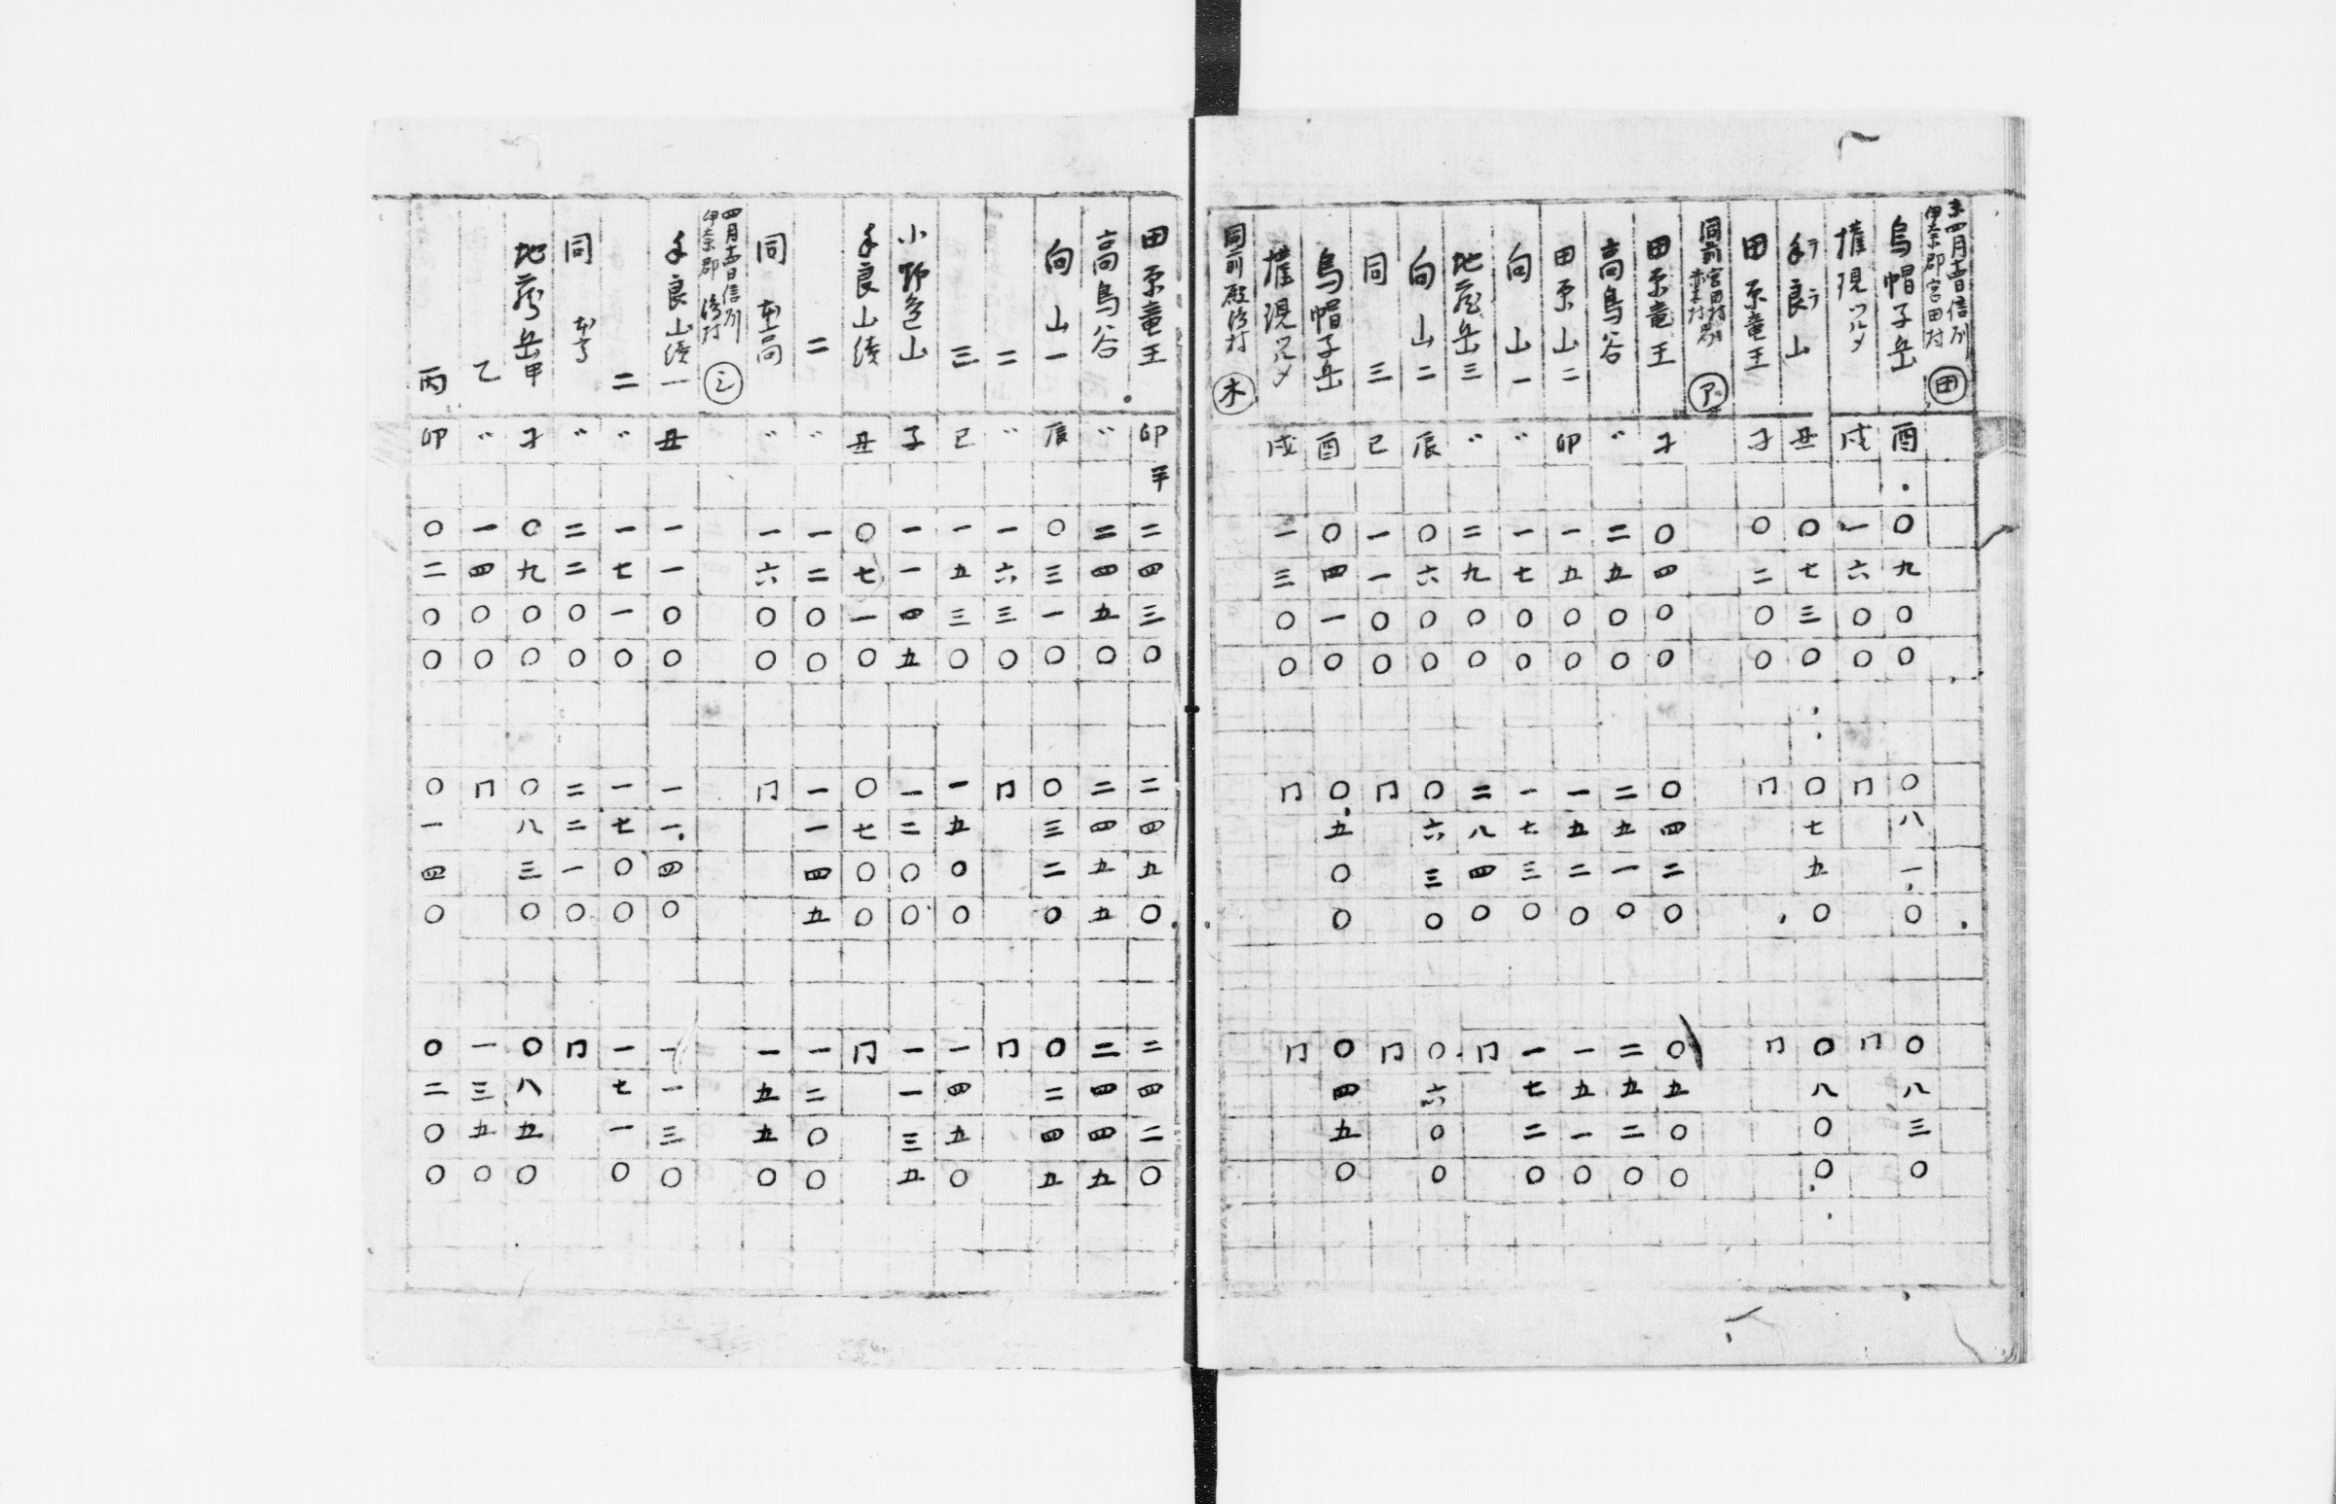 未四月十四日信州
伊奈郡宮田村 田
烏帽子岳 酉 〇九〇〇 〇八一〇 〇八三〇
権現ツルメ 戌 一六〇〇 冂 冂
手良山 テラ 丑 〇七三〇 〇七五〇 〇八〇〇
田原竜王 子 〇二〇〇 冂 冂
同前宮田村 赤木村界 ア
田原竜王 子 〇四〇〇 〇四二〇 〇五〇〇
高烏谷 〃 二五〇〇 二五一〇 二五二〇
田原山二 卯 一五〇〇 一五二〇 一五一〇
向山一 〃 一七〇〇 一七三〇 一七二〇
地蔵岳三 〃 二九〇〇 二八四〇 冂
向山二 辰 〇六〇〇 〇六三〇 〇六〇〇
同三 巳 一一〇〇 冂 冂
烏帽子岳 酉 〇四一〇 〇五〇〇 〇四五〇
権現ツルメ 戌 一三〇〇 冂 冂
同前殿嶋村 木
田原竜王 卯半 二四三〇 二四五〇 二四二〇
高烏谷 〃 二四五〇 二四五五 二四四五
向山一 辰 〇三一〇 〇三二〇 〇二四五
二 〃 一六三〇 冂 冂
三 巳 一五三〇 一五〇〇 一四五〇
小野 山 子 一一四五 一二〇〇 一一三五
手良山続 丑 〇七一〇 〇七〇〇 冂
二 〃 一二〇〇 一一四五 一二〇〇
同 高 〃 一六〇〇 冂 一五五〇
四月十四日信州
伊奈郡 嶋村 シ
手良山続一 丑 一一〇〇 一一四〇 一一三〇
二 〃 一七一〇 一七〇〇 一七一〇
同 〃 二二〇〇 二二一〇 冂
地蔵岳甲 子 〇九〇〇 〇八三〇 〇八五〇
乙 〃 一四〇〇 冂 一三五〇
丙 卯 〇二〇〇 〇一四〇 〇二〇〇